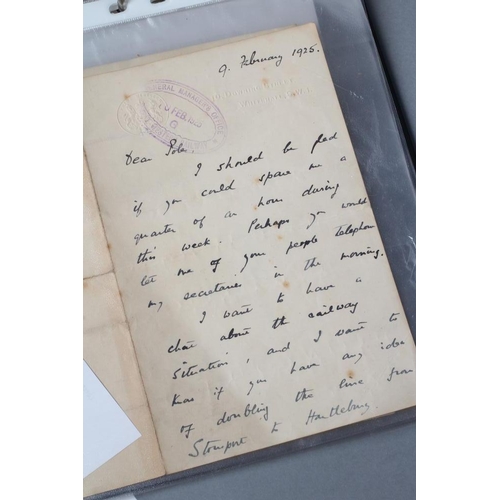 9. February 1925.
GENERAL MANAGER'S OFFICE
10 FEB. 1925
G
Dear Pole.
I should be glad
if you could spare me a
quarter of an hour during
this week. Perhaps you would
let one of your people telephone
my secretaries in the morning.
I want to have a
chat about the railway
situation, and I want to
know if you have any idea
of doubling the line from
Stourport to Hartlebury.